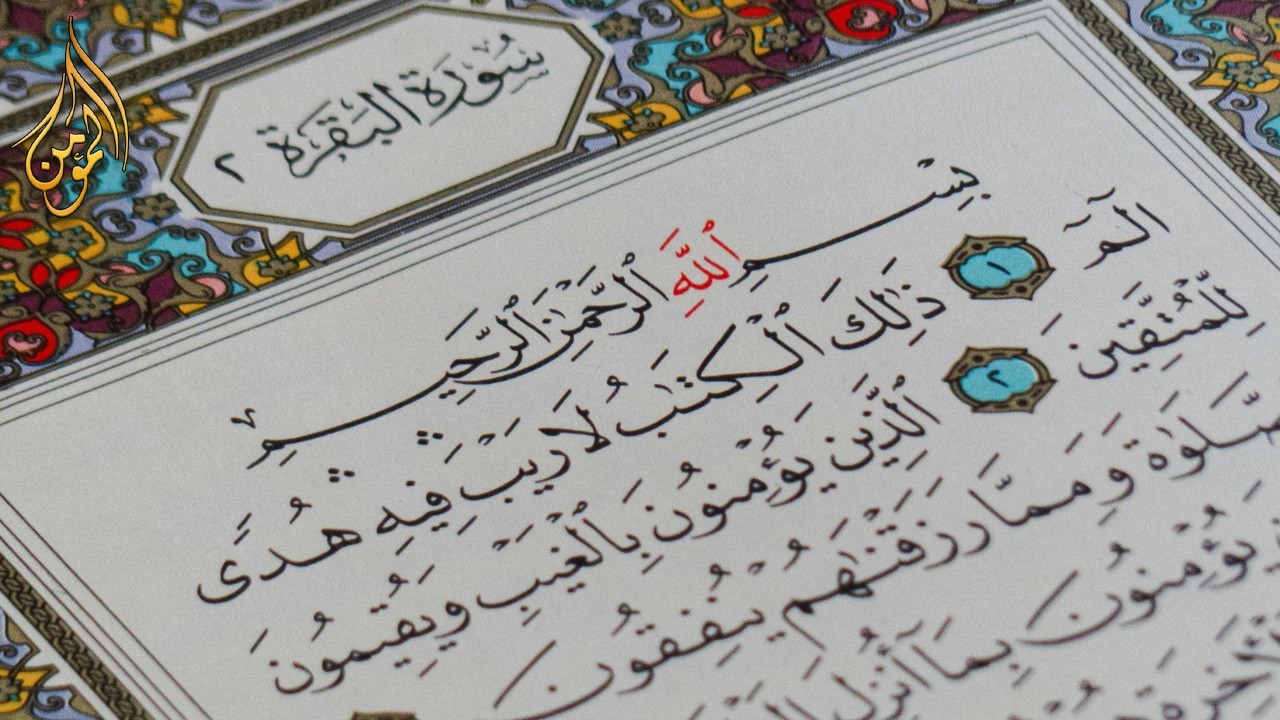 المؤمن
سُورَة البَقَرَة ٢
بِسْمِ ٱللَّهِ ٱلرَّحْمَٰنِ ٱلرَّحِيمِ
الٓمٓ ١ ذَٰلِكَ ٱلْكِتَٰبُ لَا رَيْبَ ۛ فِيهِ ۛ هُدًى
لِّلْمُتَّقِينَ ٢ ٱلَّذِينَ يُؤْمِنُونَ بِٱلْغَيْبِ وَيُقِيمُونَ
وَمِمَّا رَزَقْنَٰهُمْ يُنفِقُونَ
يُؤْمِنُونَ بِمَآ أُنزِلَ